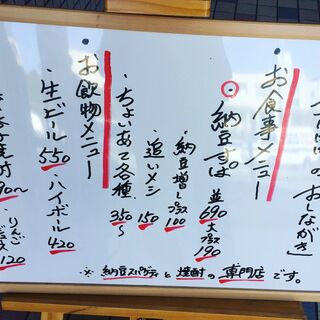 おしながき
お食事メニュー
納豆すぱ
並690 大プラス190
納豆増しプラス100
追いメシ150
・ちょいあて各種
350~
・お飲物メニュー
・生ビール550
・ハイボール420
・りんご
120
※納豆スパゲティと焼酎の専門店です。